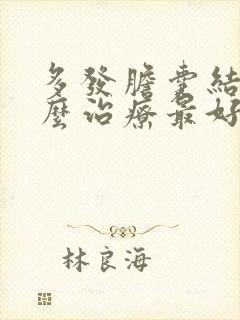 多發膽囊結
麼治療最好
林良海